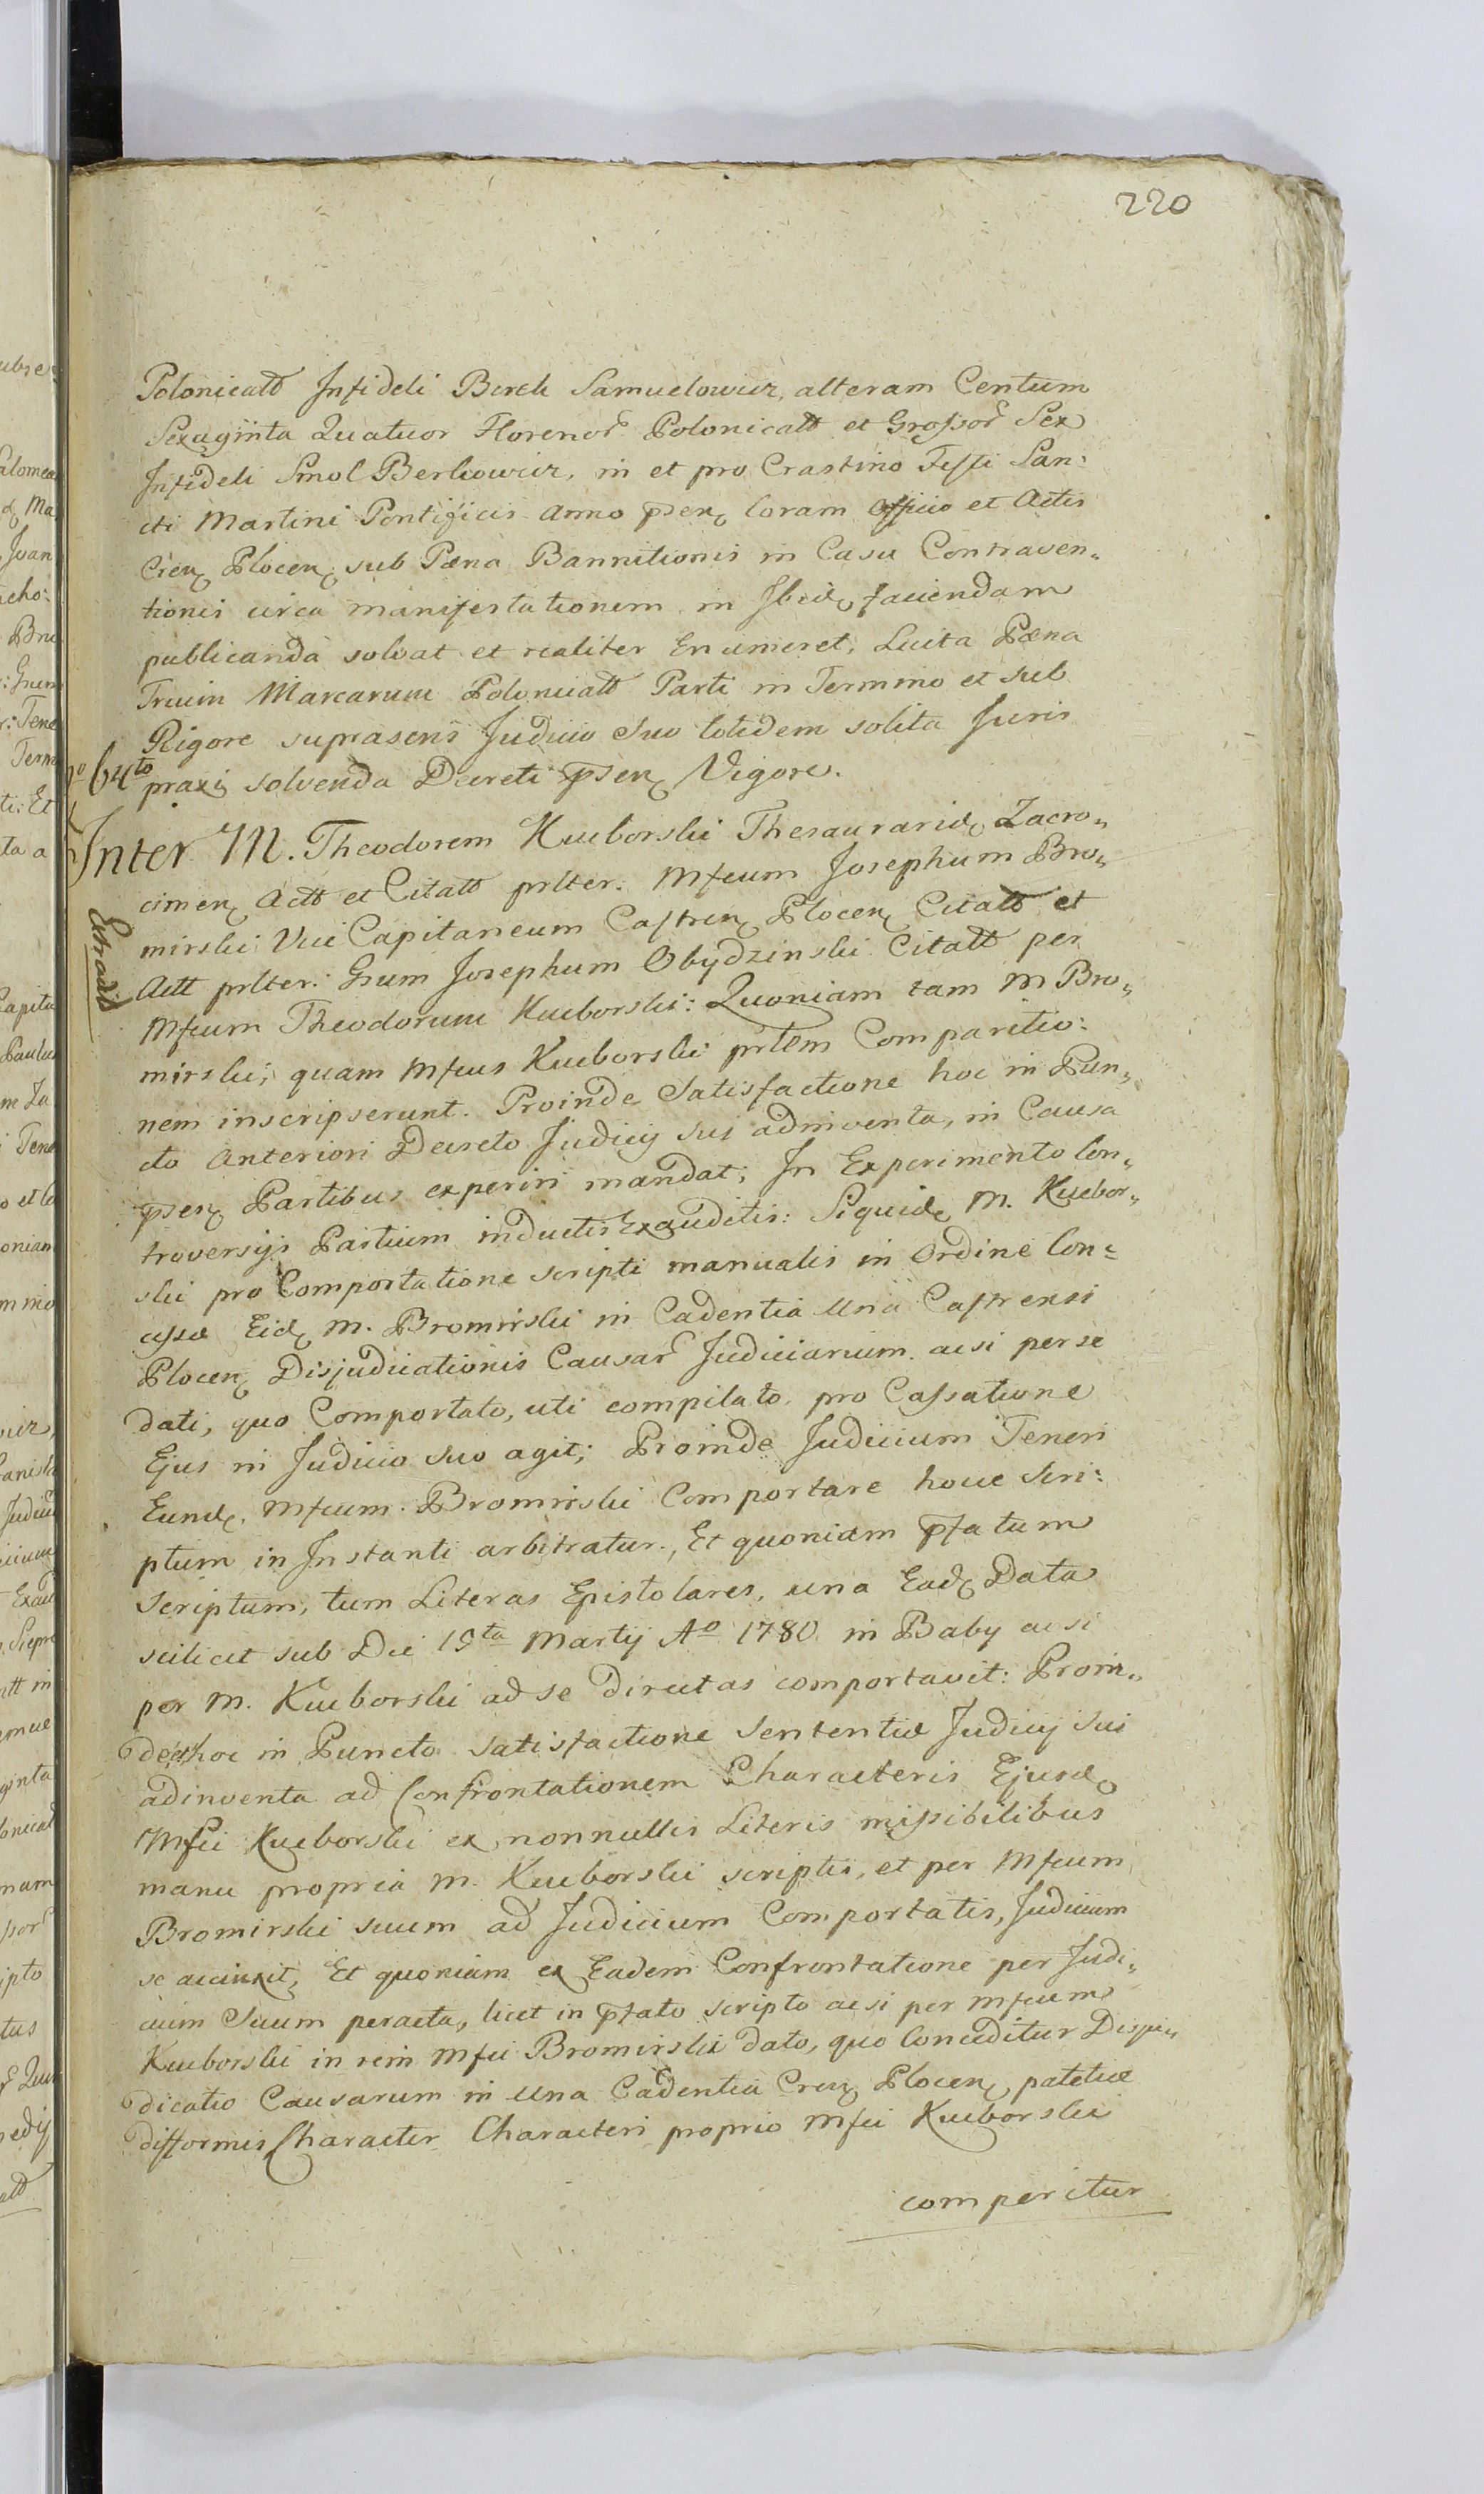 220
Polonicalb Infideli Berek Samuelowicz, alteram Centum
Sexaginta Quatuor Florenor Polonicalb et Grossor Sex
Infideli Smol Berkowicz, in et pro Crastino Festi San:
cti Martini Pontificis Anno psen Coram Officio et Actis
Cren Plocen, sub Pæna Bannitionis in Casu Contraven„
tionis circa manifestationem in Ibid faciendam
publicanda solvat et realiter Enumeret, Luita Pæna
Trium Marcarum Polonicalb Parti in Termino et sub
Rigore suprascris Judicio suo totidem solita Juris
64to praxi solvenda Decreti psen Vigore.
Inter M. Theodorem Kucborski Thesaurarid Zacro„
cimen Actt et Citatt prlter. Mfcum Josephum Bro„
mirski Vice Capitaneum Castren Plocen Citatt et
Extradit
Actt prlter: Gsum Josephum Obydzinski Citatt per
Mfcum Theodorum Kucborski: Quoniam tam M Bro„
mirski, quam Mfcus Kucborski prlem Comparitio:
nem inscripserunt. Proinde Satisfactione hoc in Pun„
cto Anteriori Decreto Judicij sui adinventa, in Causa
psen Partibus experiri mandat; In Experimento Con„
troversijs Partium inductis Exauditis: Siquid M. Kucbor„
ski pro Comportatione scripti manualis in Ordine Con=
cessæ Eid M. Bromirski in Cadentia Una Castrensi
Plocen Disjudicationis Causar Judiciarium acsi per se
dati, quo Comportato, uti compilato pro Cassatione
Ejus in Judicio suo agit; Proinde Judicium Teneri
Eund. Mfcum. Bromirski Comportare hocce Scri:
ptum in Instanti arbitratur., Et quoniam pfatum
Scriptum, tum Literas Epistolares, una Ead Data
scilicet sub Die 19ta Martij Ao 1780 in Baby acsi
per M. Kucborski ad se directas comportavit: Proin„
de hoc in Puncto satisfactione sententiæ Judicij sui
adinventa ad Confrontationem Characteris Ejusd
Mfci Kucborski ex nonnullis Literis missibilibus
manu propria M. Kucborski scriptis, et per Mfcum
Bromirski suum ad Judicium Comportatis, Judicium
se accinxit, Et quoniam ex Eadem Confrontatione per Judi„
cium Suum peracta, licet in pfato scripto acsi per Mfcum
Kucborski in rem Mfci Bromirski dato, quo Conceditur Disju„
dicatio Causarum in Una Cadentia Cren Plocen, patetice
difformis Character Characteri proprio Mfci Kucborski
comperitur